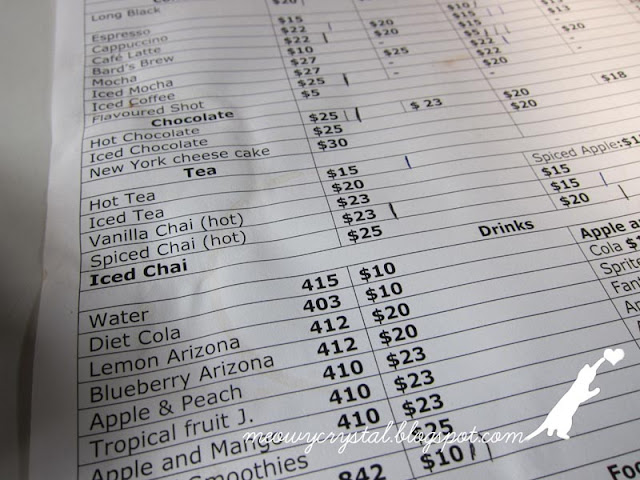 Long Black $20 $10
Espresso $15 $15 $13
Cappuccino $22 $20 $15
Café Latte $22 $20 $22 $20
Bard's Brew $10 -
Mocha $27 $25 $20
Iced Mocha $27 -
Iced Coffee $25 -
Flavoured Shot $5
Chocolate
Hot Chocolate $25 $23 $20 $18
Iced Chocolate $25 $20
New York cheese cake $30
Tea
Hot Tea $15 Spiced Apple:$1
Iced Tea $20 $15
Vanilla Chai (hot) $23 $15
Spiced Chai (hot) $23 $20
Iced Chai $25
Drinks Apple a
Water 415 $10 Cola $
Diet Cola 403 $10 Sprit
Lemon Arizona 412 $20 Fan
Blueberry Arizona 412 $20 Ap
Apple & Peach 410 $23
Tropical fruit J. 410 $23
Apple and Mang 410 $23
Smoothies $25
842 $10
Foo
meowycrystal.blogspot.com